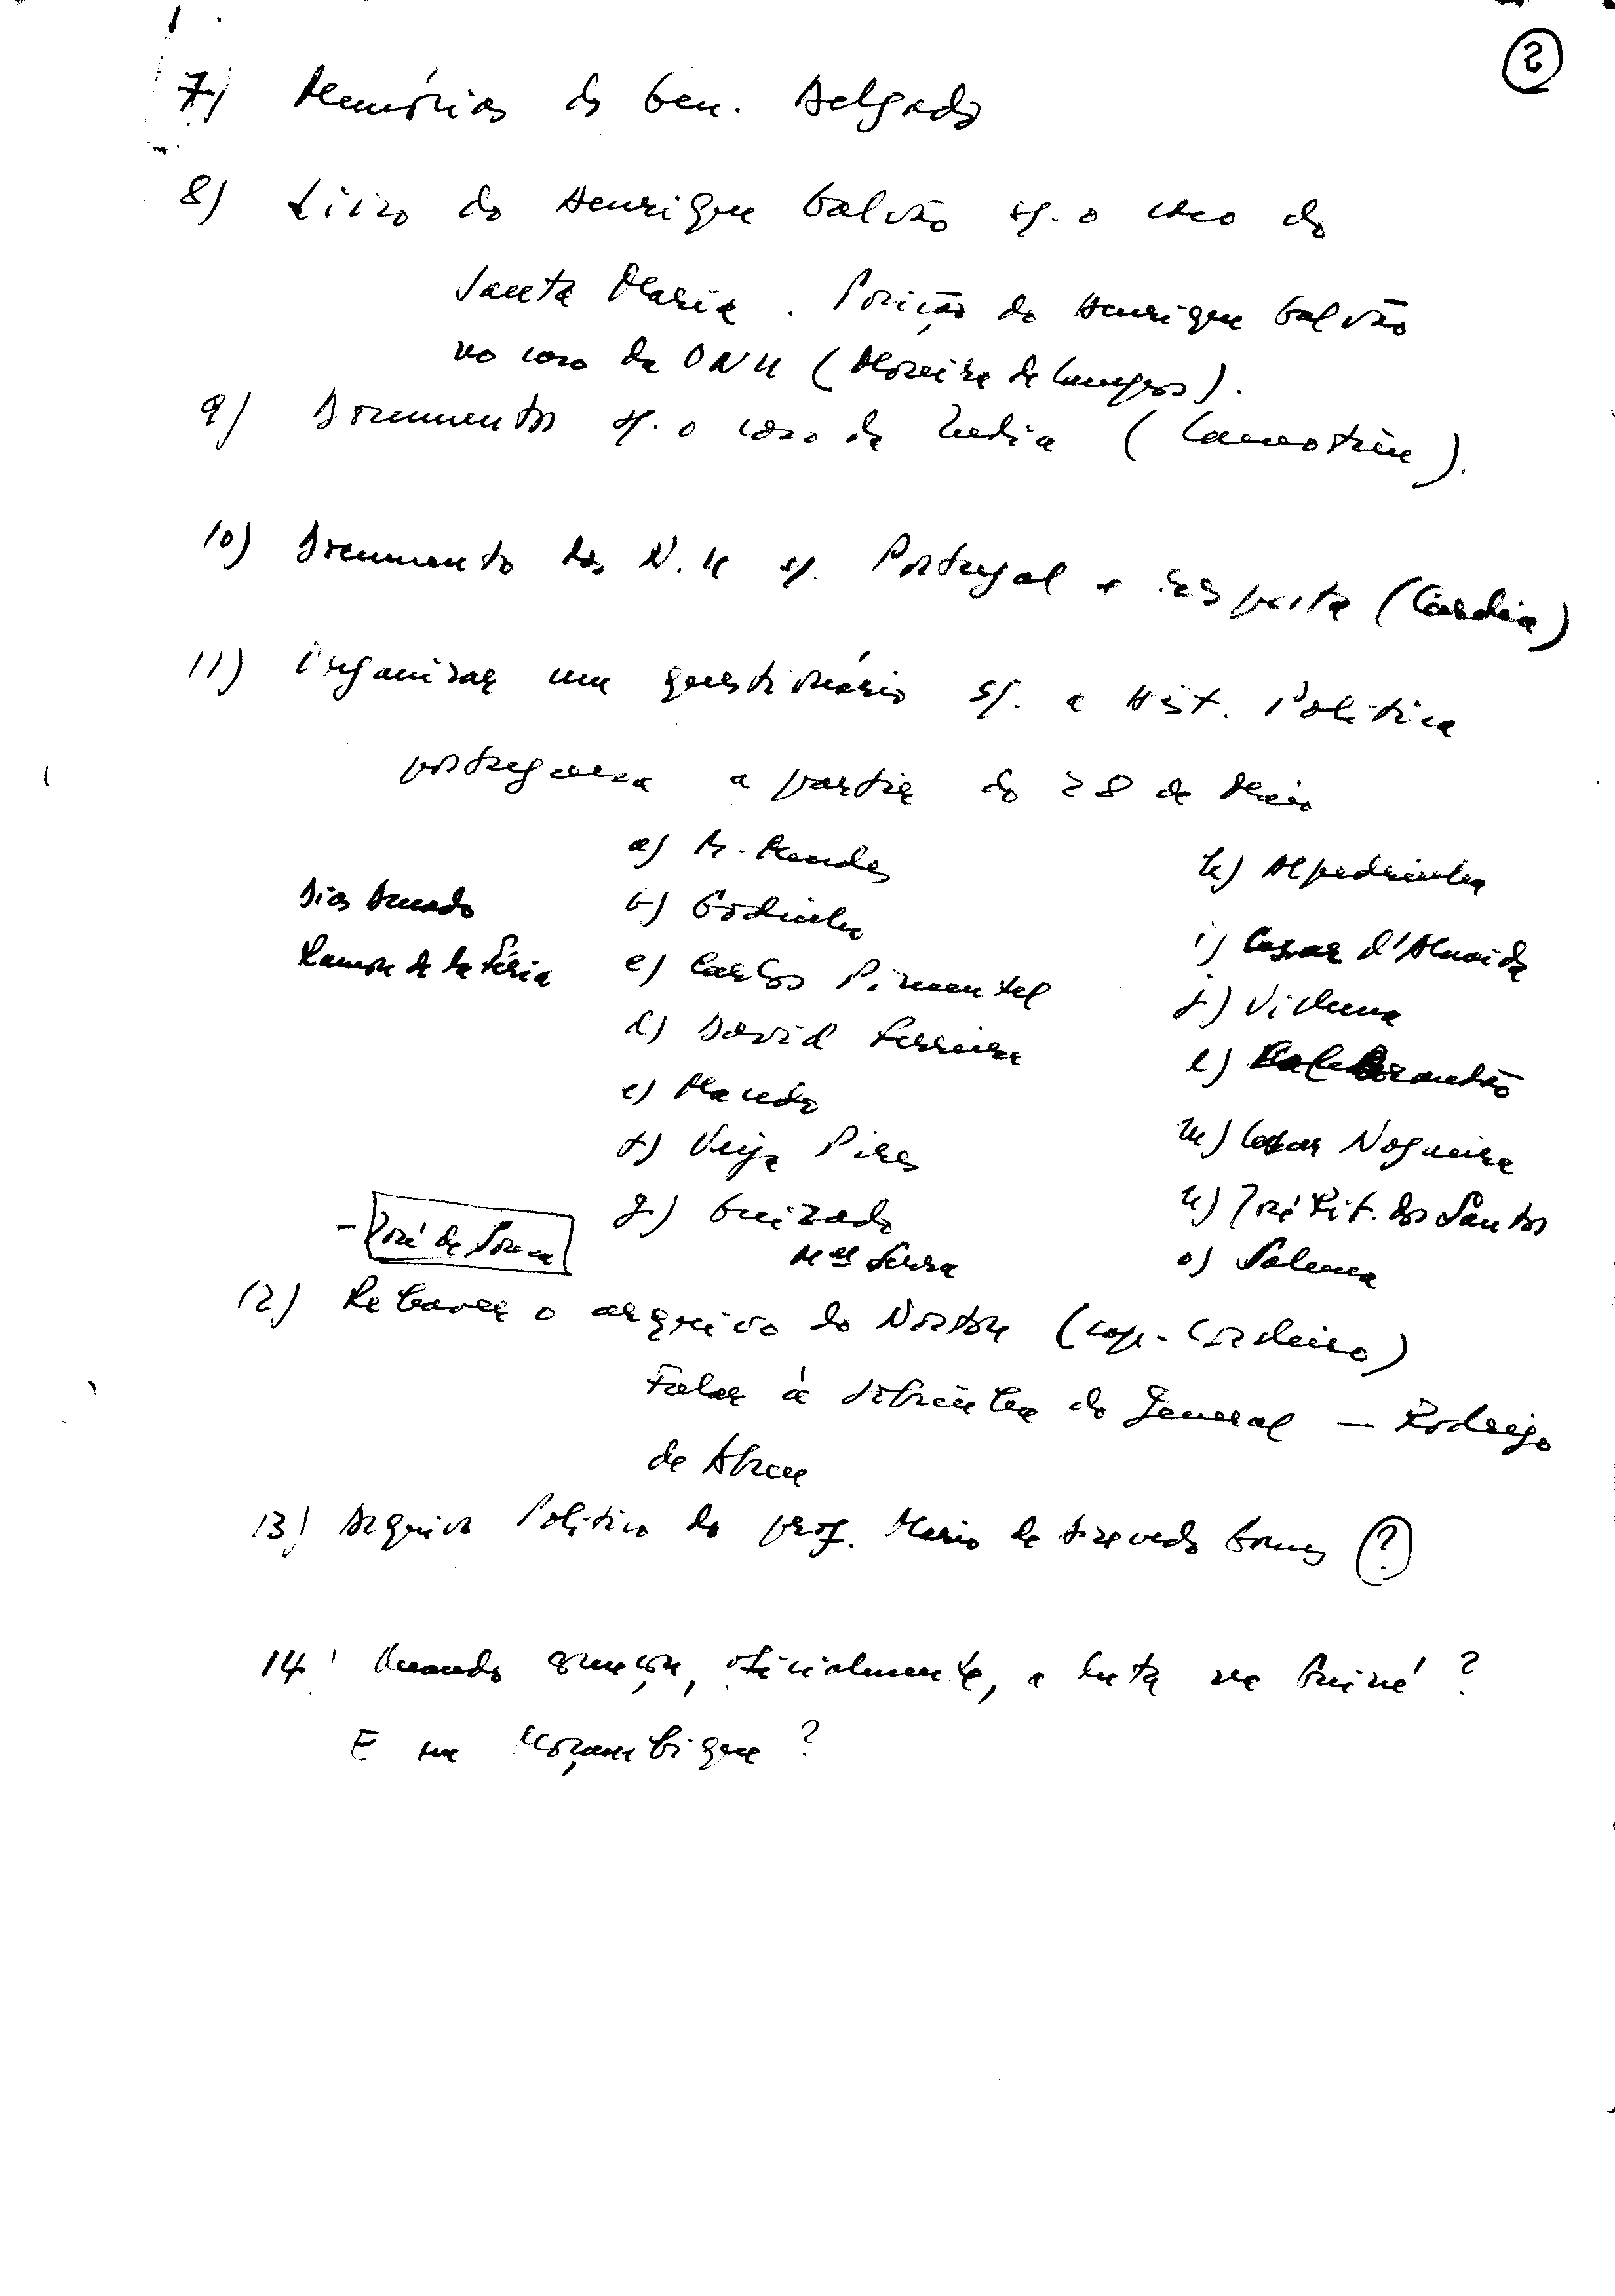 2
7) Memórias do Gen. Delgado
8) Livro do Henrique Galvão s/. o caso do
Santa Maria. Posição do Henrique Galvão
no caso da ONU (Moreira de Campos).
9) Documentos s/. o caso da India (Camotim).
10) Documento das N.U s/. Portugal e resposta (Cardia)
11) Organizar um questionário s/. a Hist. Politica
portuguesa a partir do 28 de Maio
a) M. Mendes
Dias Amado
b) Godinho
Ramon de la Féria
c) Carlos Pimentel
d) David Ferreira
e) Macedo
f) Veiga Pires
g) Guizado
- José de Sousa
Mel Serra
h) Alpedrinha
i) Cesar d'Almeida
j) Vilhena
l) Brandão
m) Cesar Nogueira
n) José Rib. dos Santos
o) Salema
12) Rehaver o arquivo do Norton (cap. Cordeiro)
Falar à sobrinha do General — Rodrigo
de Abreu
13) Arquivo Politico do prof. Mario de Azevedo Gomes (?)
14) Quando começou, oficialmente, a luta na Guiné?
E em Moçambique?